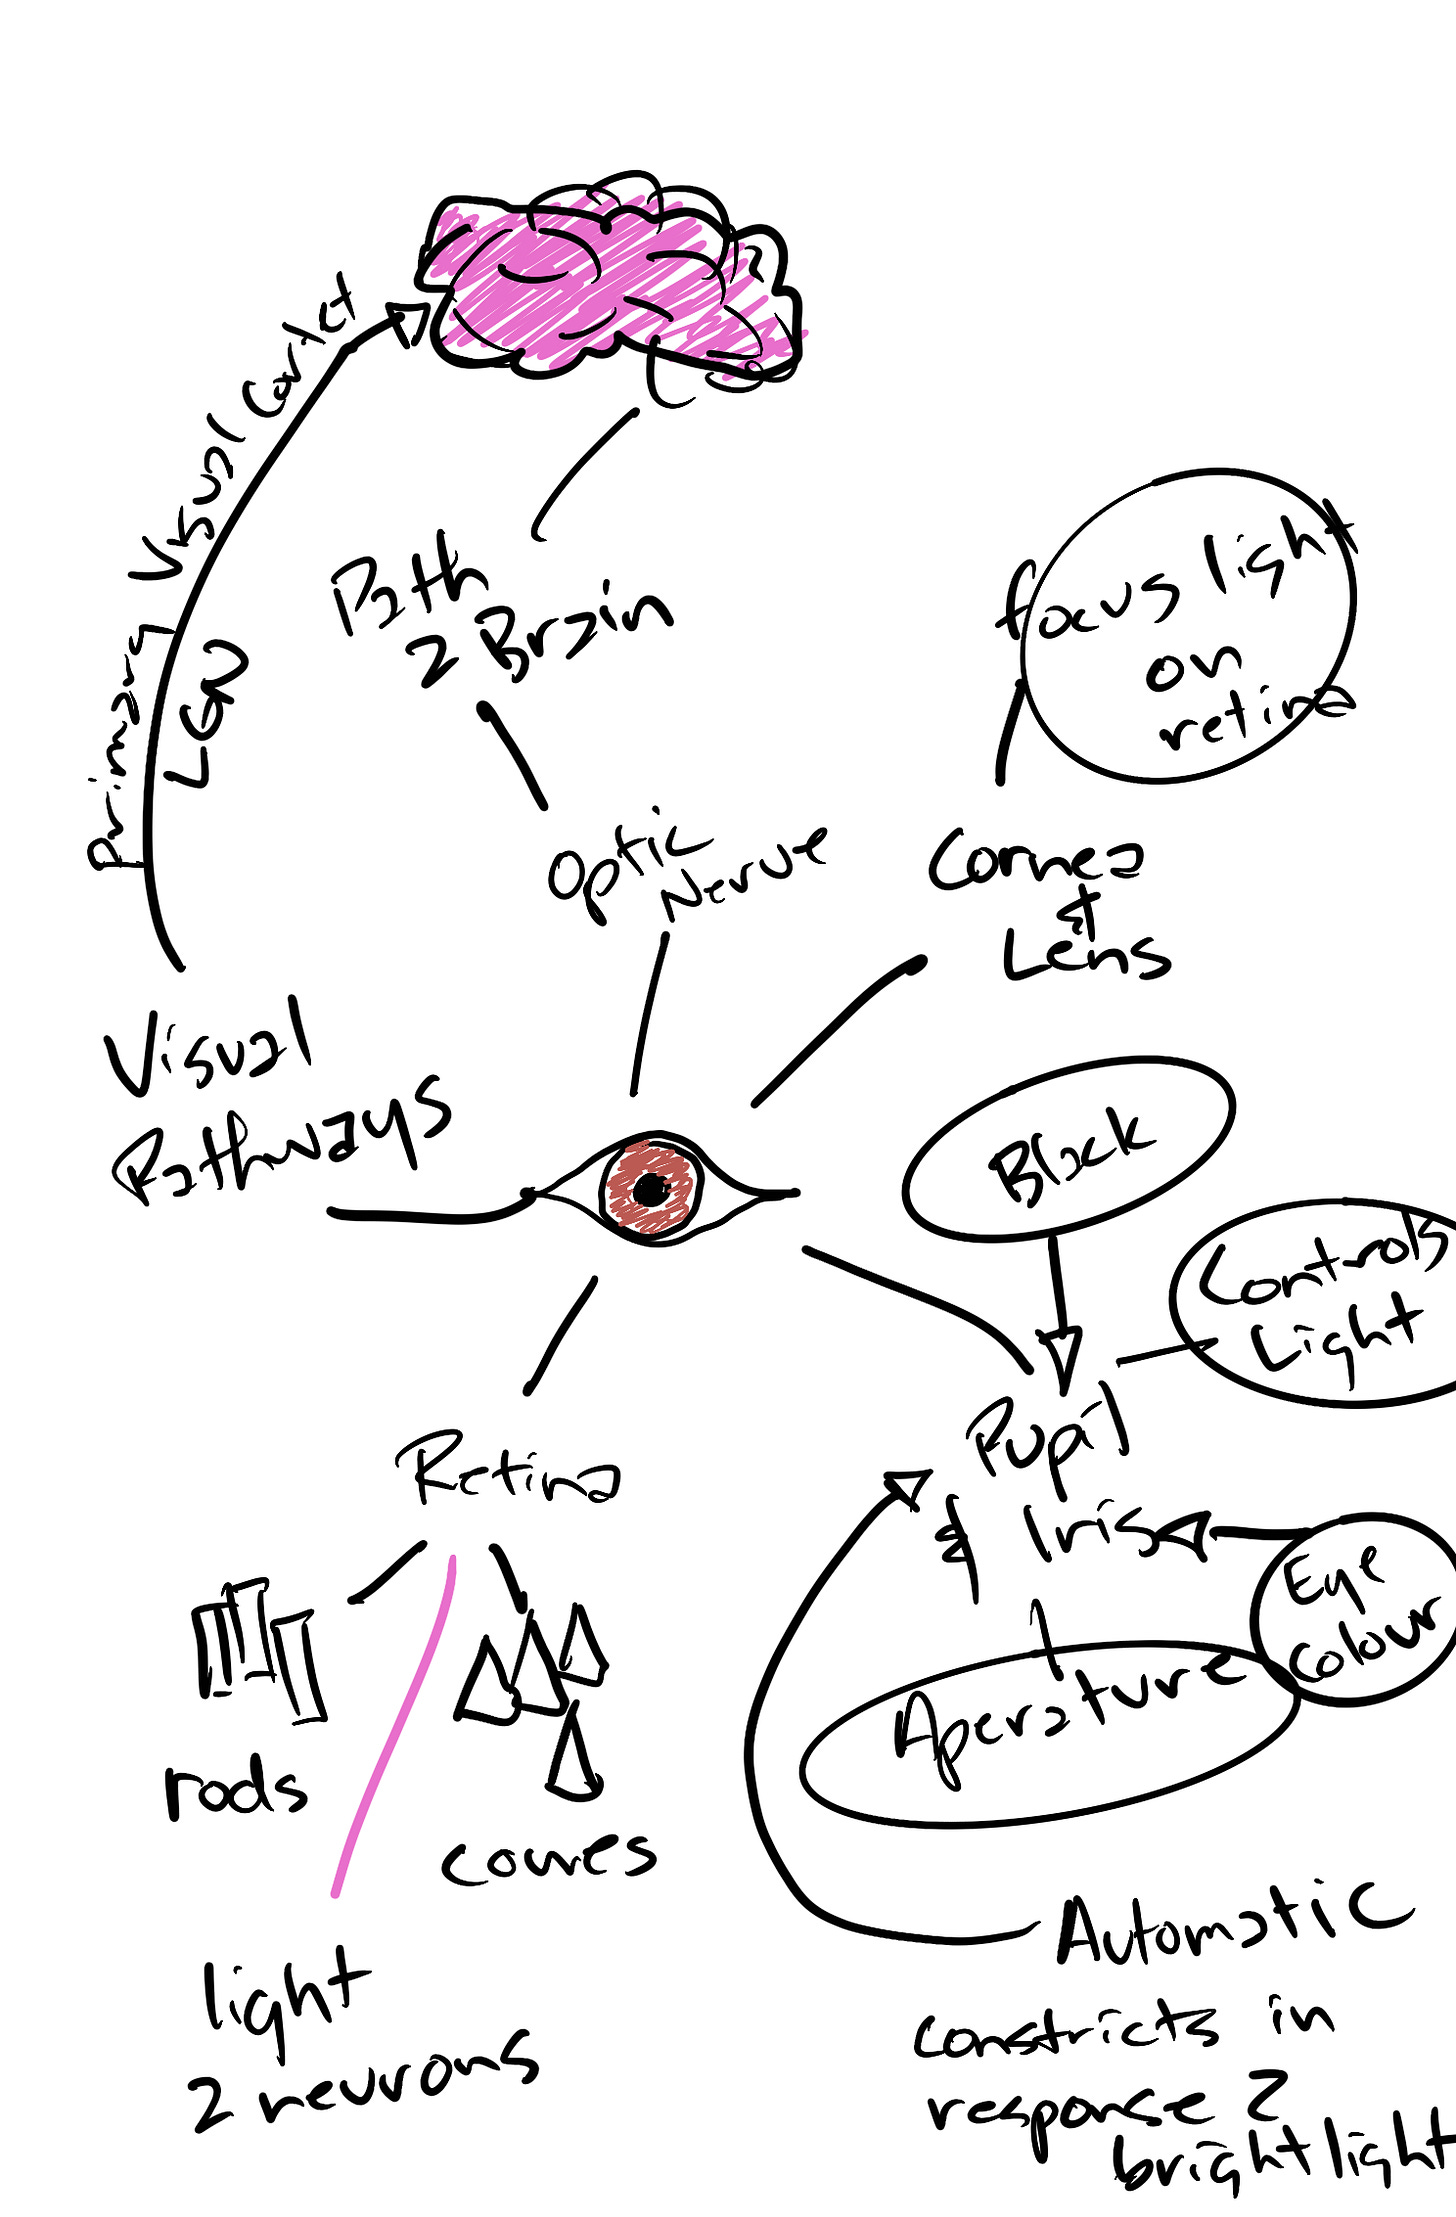 Primary Visual Cortex
LGN
Path
2 Brain
focus light
on
retina
Optic
Nerve
Cornea
&
Lens
Visual
Pathways
Black
Controls
Light
Pupil
& Iris
Eye
Colour
Aperature
Retina
rods
cones
light
2 neurons
Automatic
constricts in
response 2
bright light